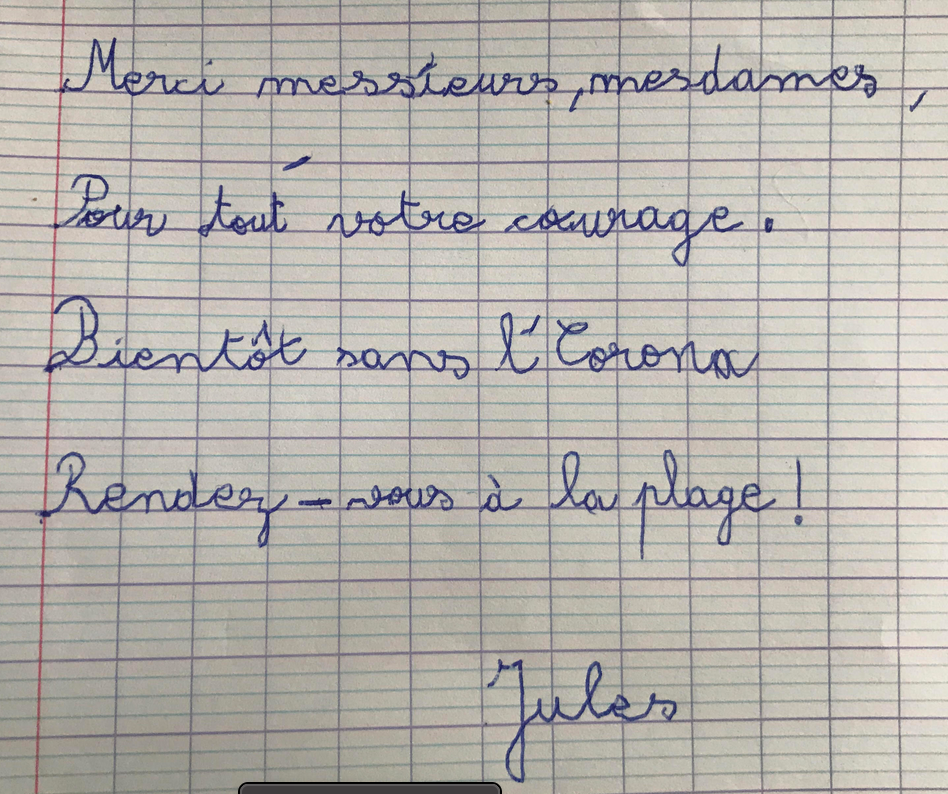 Merci messieurs, mesdames,
Pour tout votre courage.
Bientôt sans l'Corona
Rendez-vous à la plage!
Jules